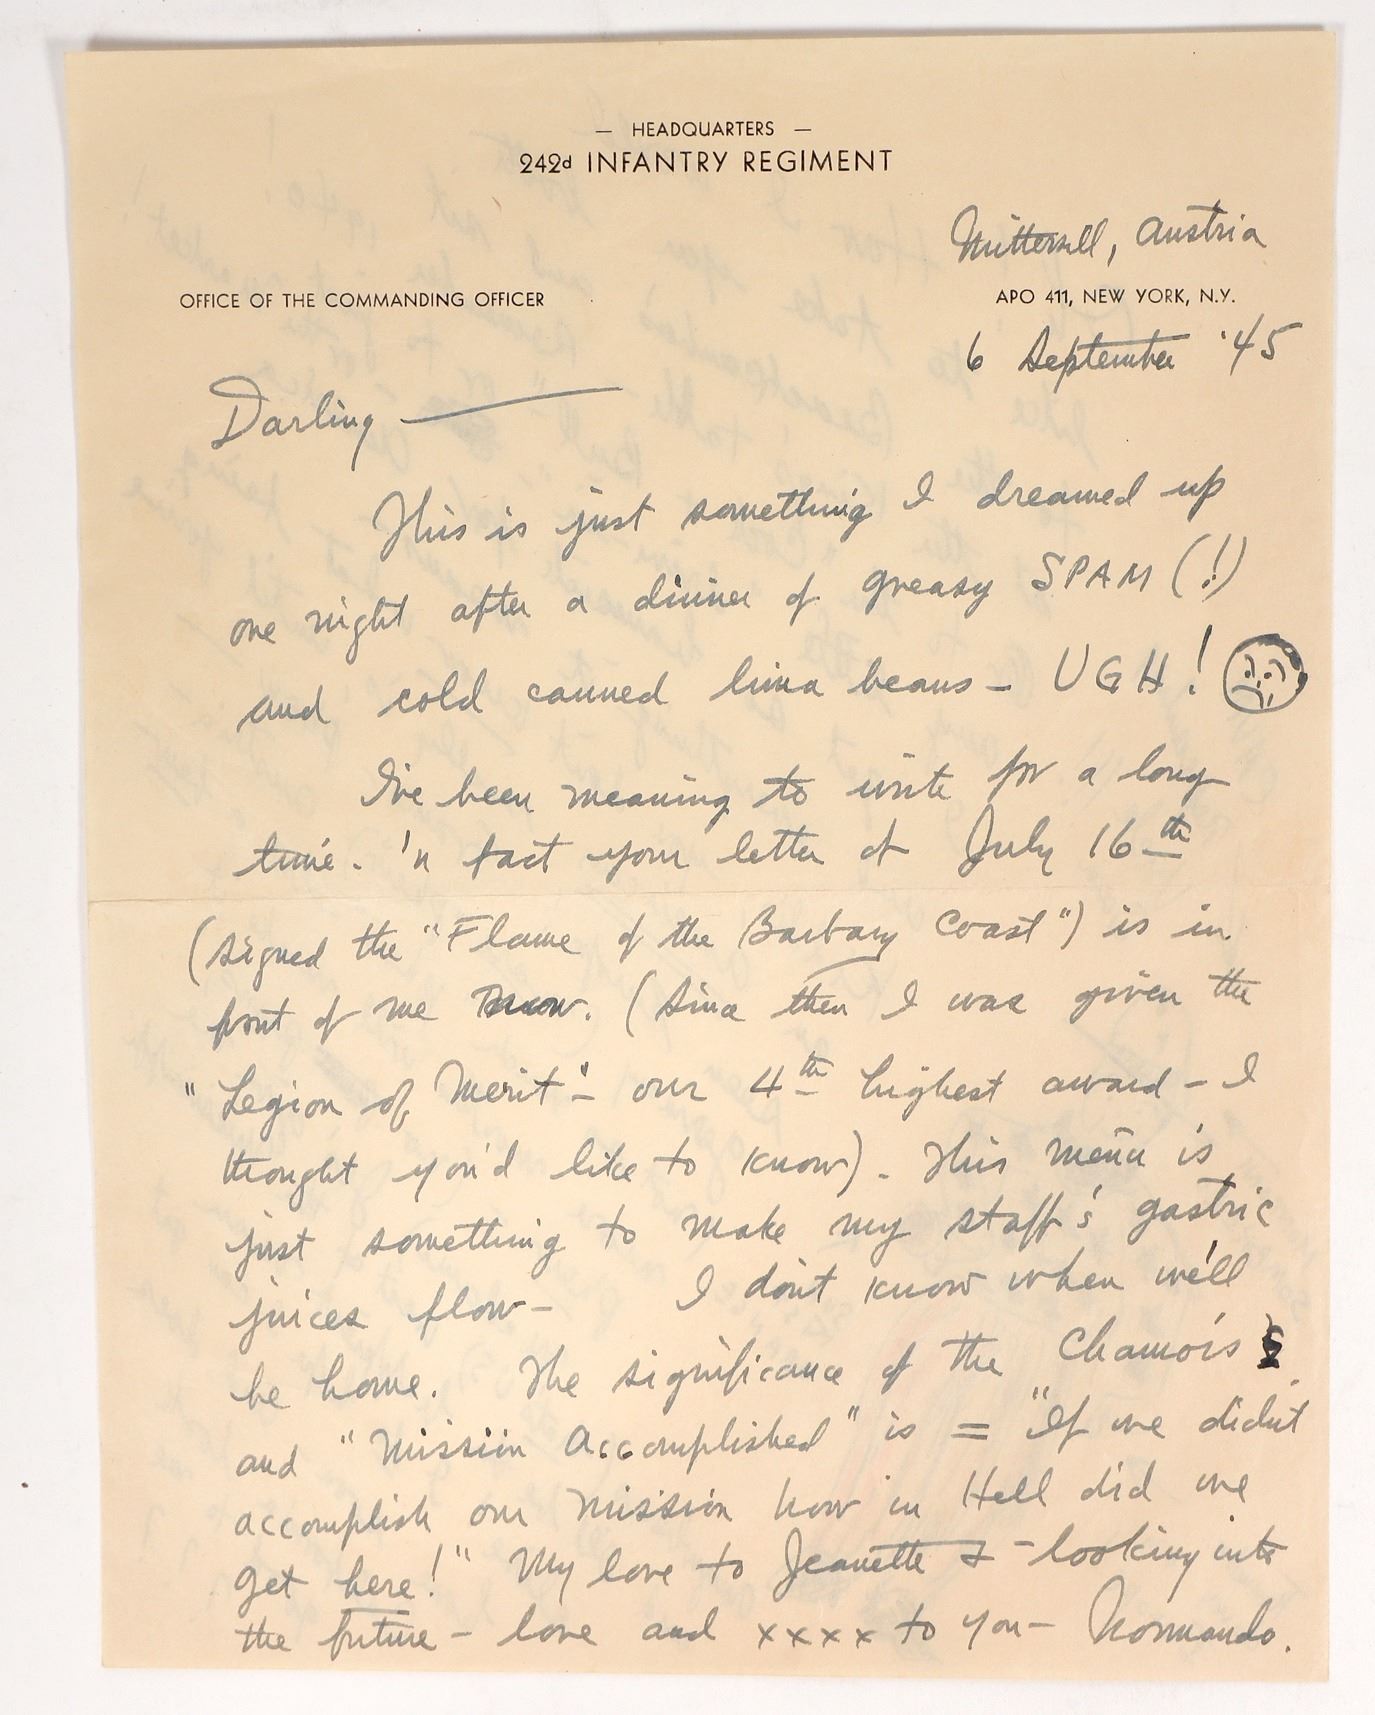 — HEADQUARTERS —
242d INFANTRY REGIMENT
Mittersill, Austria
OFFICE OF THE COMMANDING OFFICER
APO 411, NEW YORK, N.Y.
6 September '45
Darling —
This is just something I dreamed up
one night after a dinner of greasy SPAM (!)
and cold canned lima beans — UGH!
I've been meaning to write for a long
time. 'n fact your letter of July 16th
(signed the "Flame of the Barbary Coast") is in
front of me now. (Since then I was given the
"Legion of Merit" — our 4th highest award — I
thought you'd like to know). This menu is
just something to make my staff's gastric
juices flow — I don't know when we'll
be home. The significance of the Chamois
and "Mission Accomplished" is = "If we didn't
accomplish our mission how in Hell did we
get here!" My love to Jeanette & — looking into
the future — love and xxxx to you — Normando.